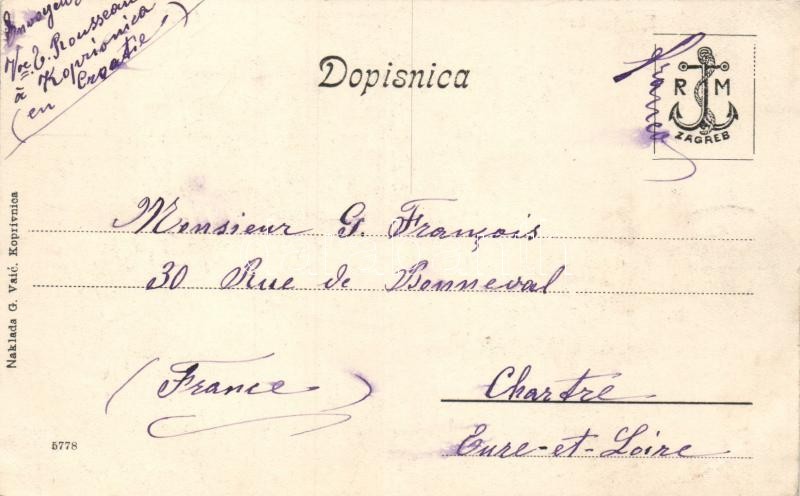 E. Rousseau
à Koprionica
(en Croatie)
Dopisnica
Franca
R M
ZAGREB
Naklada G. Vaić, Koprivnica
Monsieur G. François
30 Rue de Bonneval
(France)
Chartre
Eure-et-Loire
5778